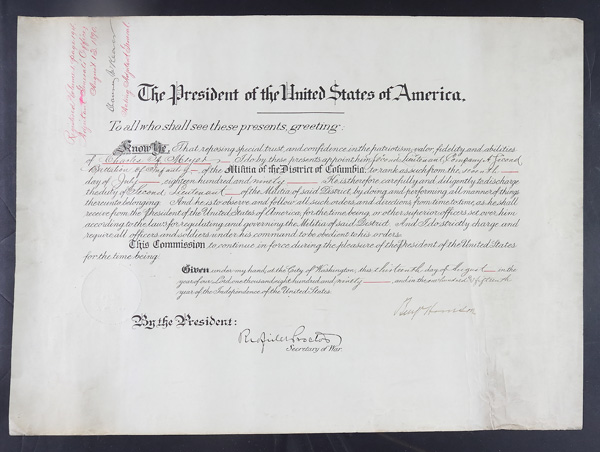 The President of the United States of America.
To all who shall see these presents, greeting:
Know Ye, That reposing special trust and confidence in the patriotism, valor, fidelity and abilities
of Charles H. I do by these presents appoint him Second Lieutenant, Company A Second
Battalion of Infantry of the Militia of the District of Columbia, to rank as such from the
day of eighteen hundred and ninety He is therefore carefully and diligently to discharge
the duty of Second Lieutenant of the Militia of said District, by doing and performing all manner of things
thereunto belonging. And he is to observe and follow all such orders and directions, from time to time, as he shall
receive from the President of the United States of America, for the time being, or other superior officers set over him,
according to the laws for regulating and governing the Militia of said District. And I do strictly charge and
require all officers and soldiers under his command to be obedient to his orders.
This Commission to continue in force during the pleasure of the President of the United States
for the time being.
Given under my hand, at the City of Washington, this thirteenth day of August in the
year of our Lord one thousand eight hundred and ninety, and in the one hundred & fifteenth
year of the Independence of the United States.
Benj Harrison
By the President:
Redfield Proctor
Secretary of War.
Adjutant General's Office,
August 1890
Acting Adjutant General